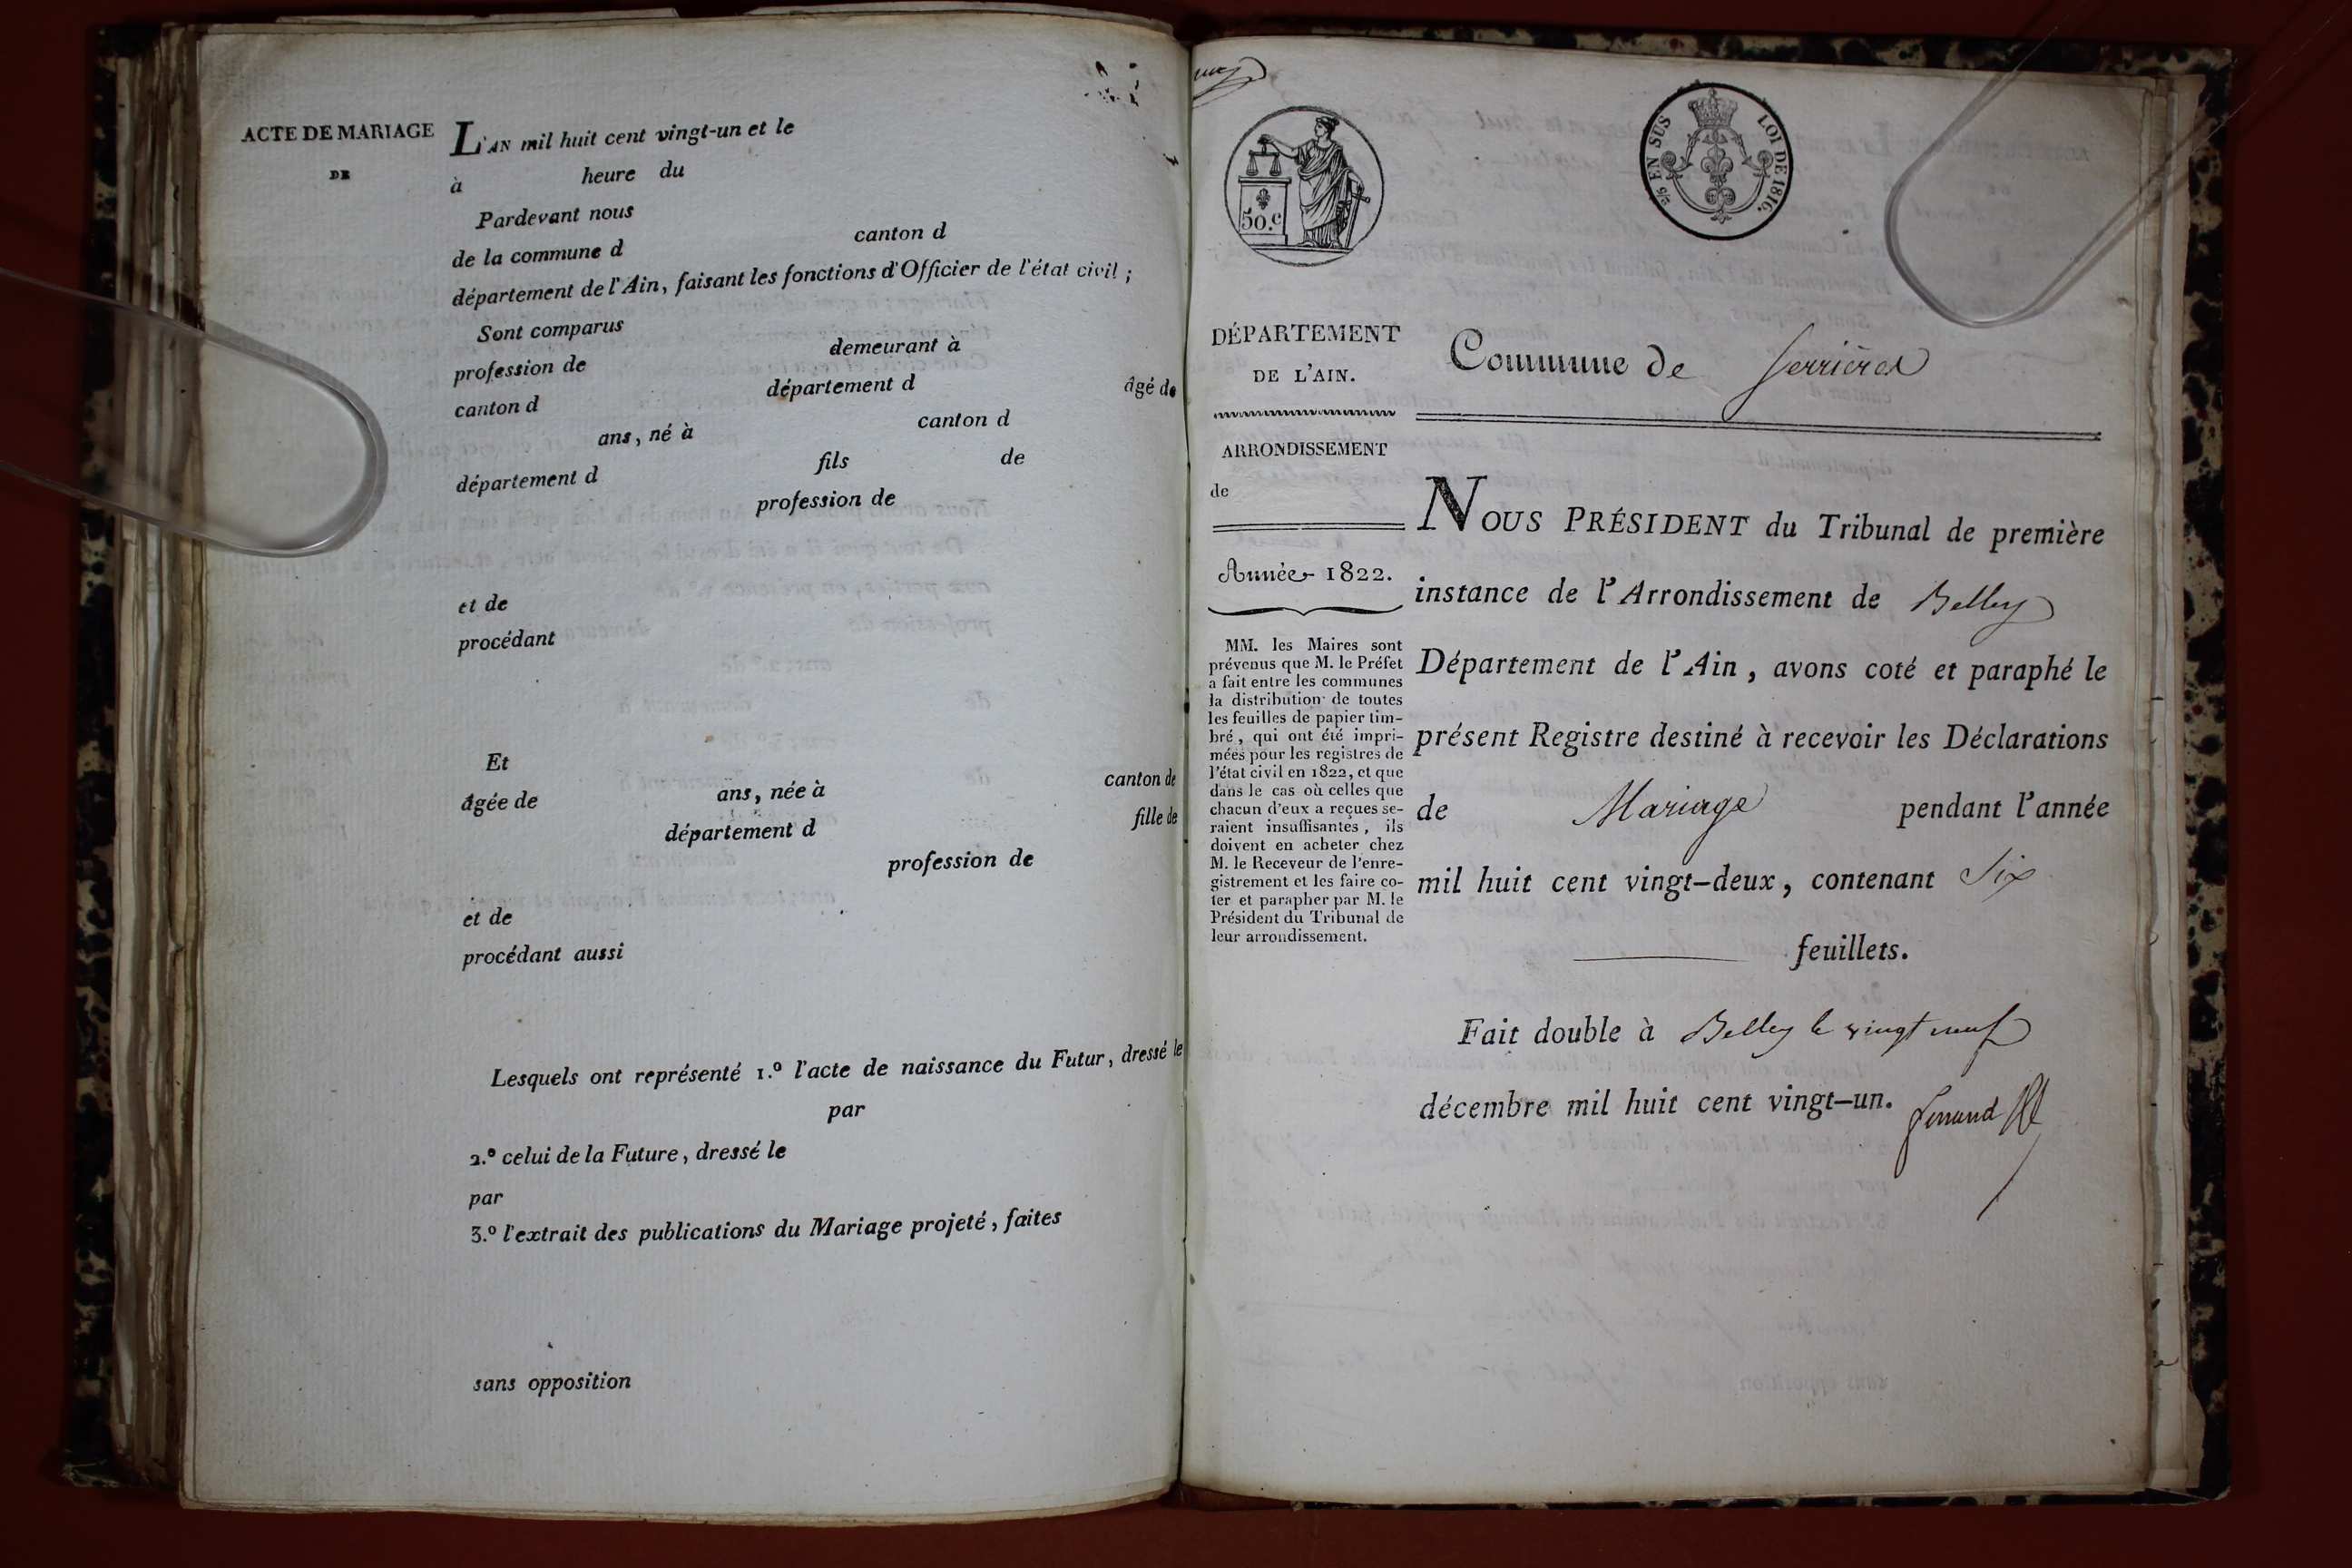 ACTE DE MARIAGE
DE
L'AN mil huit cent vingt-un et le
à heure du
Pardevant nous
de la commune d canton d
département de l'Ain, faisant les fonctions d'Officier de l'état civil ;
Sont comparus
profession de demeurant à
canton d département d âgé de
ans, né à canton d
département d fils de
profession de
et de
procédant
Et
âgée de ans, née à canton de
département d fille de
profession de
et de
procédant aussi
Lesquels ont représenté 1.º l'acte de naissance du Futur, dressé le
par
2.º celui de la Future, dressé le
par
3.º l'extrait des publications du Mariage projeté, faites
sans opposition
50.c
EN SUS
LOI DE 1816.
DÉPARTEMENT
DE L'AIN.
ARRONDISSEMENT
de
Année 1822.
MM. les Maires sont
prévenus que M. le Préfet
a fait entre les communes
la distribution de toutes
les feuilles de papier tim-
bré, qui ont été impri-
mées pour les registres de
l'état civil en 1822, et que
dans le cas où celles que
chacun d'eux a reçues se-
raient insuffisantes, ils
doivent en acheter chez
M. le Receveur de l'enre-
gistrement et les faire co-
ter et parapher par M. le
Président du Tribunal de
leur arrondissement.
Commune de Serrières
NOUS PRÉSIDENT du Tribunal de première
instance de l'Arrondissement de Belley
Département de l'Ain, avons coté et paraphé le
présent Registre destiné à recevoir les Déclarations
de Mariage pendant l'année
mil huit cent vingt-deux, contenant Six
feuillets.
Fait double à Belley le vingt neuf
décembre mil huit cent vingt-un.